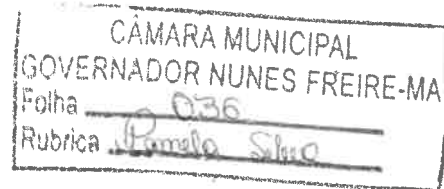 CÂMARA MUNICIPAL
GOVERNADOR NUNES FREIRE-MA
Folha 036
Rubrica Pamela Silva